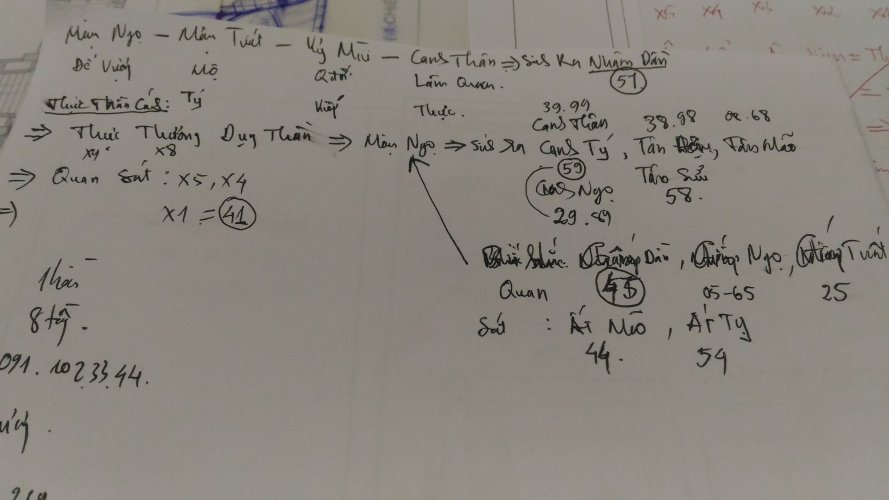 x5 x4 x3 x2 x
Mậu Ngọ – Mậu Tuất – Kỷ Mùi – Canh Thân => Sinh ra Nhâm Dần
Đế Vượng Mộ Lâm Quan. 51
Thực Thần Cách: Tý Kiếp Thực. 39.99
=> Thực Thương Dụng Thần => Mậu Ngọ => Sinh ra Canh Tý, Tân, Tân Mão
Canh Thân 38.98 02.68
x9 x8
59 Tân Sửu
=> Quan Sát : x5, x4 Canh Ngọ 58.
=> x1 = 41 29.89
Dần, Ngọ, Tuất
Thần Quan 45 05-65 25
8 tỷ. Sát : Ất Mão, Ất Tỵ
091.102.33.44. 44. 54